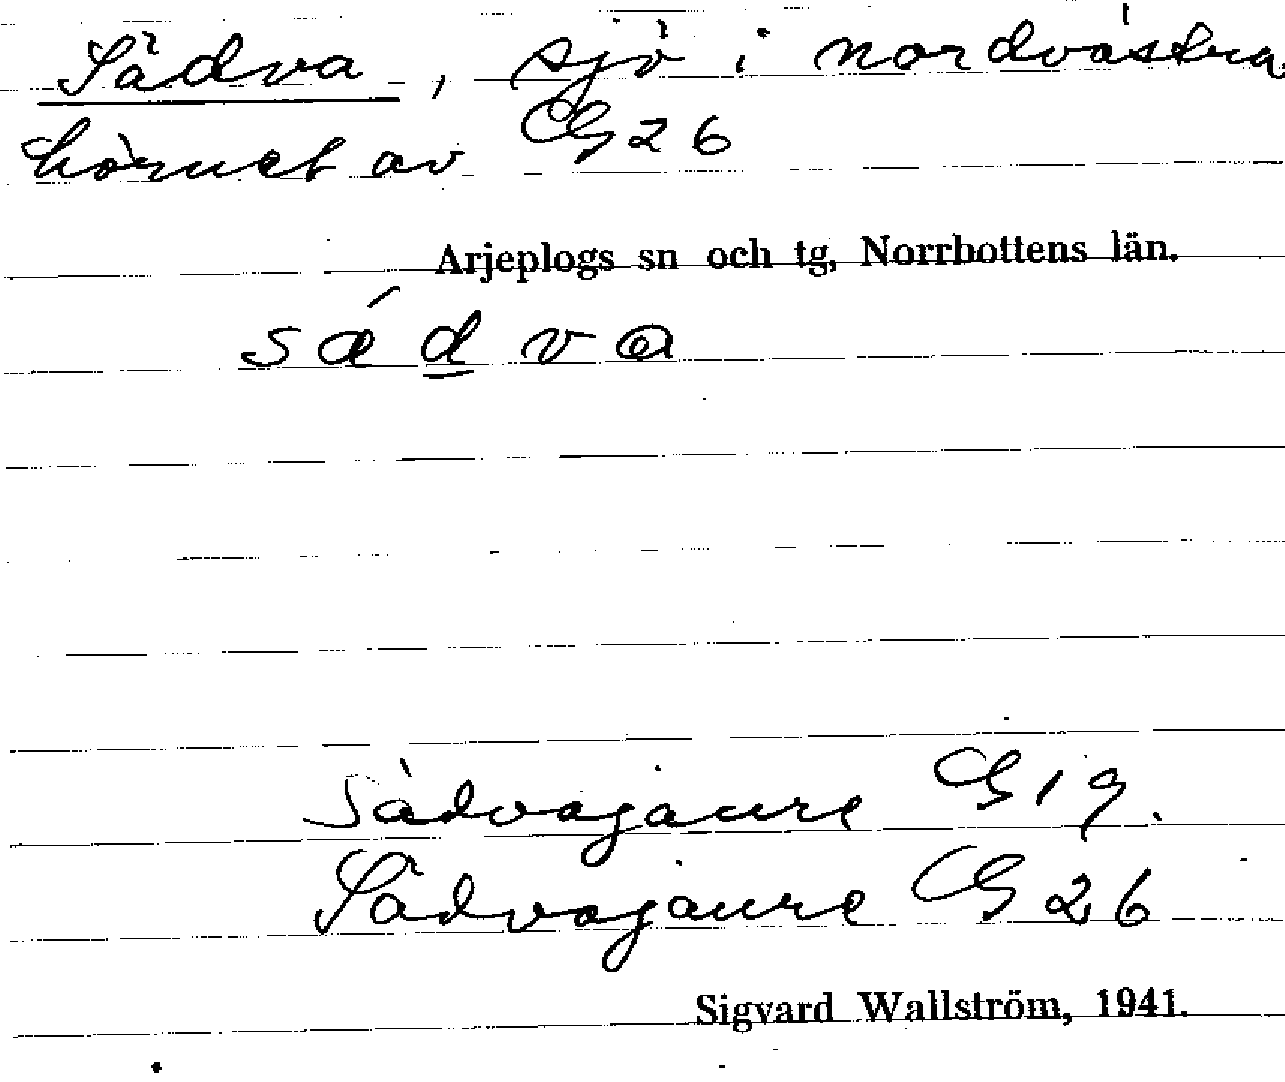 Sädva, sjö i nordvästra
hörnet av G 26
Arjeplogs sn och tg, Norrbottens län.
Sädvajaure G 19.
Sädvajaure G 26
Sigvard Wallström, 1941.